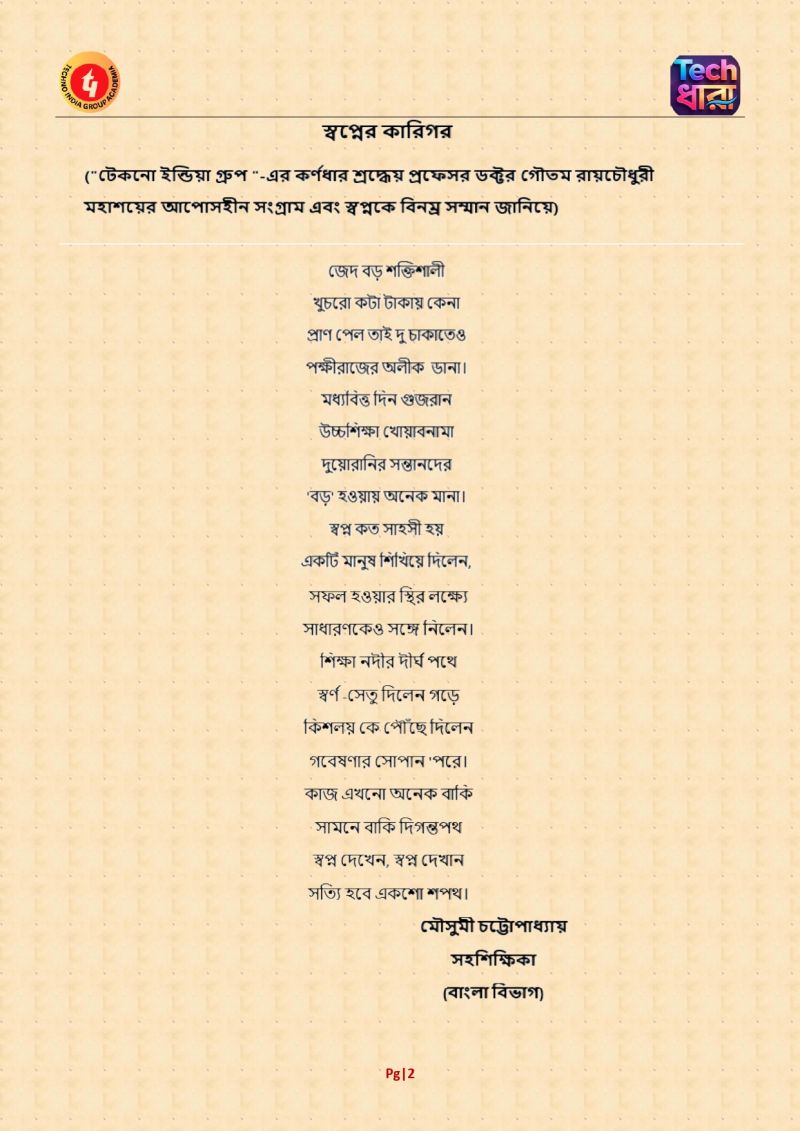 TECHNO INDIA GROUP ACADEMIA
Tech
ধারা
স্বপ্নের কারিগর
("টেকনো ইন্ডিয়া গ্রুপ "-এর কর্ণধার শ্রদ্ধেয় প্রফেসর ডক্টর গৌতম রায়চৌধুরী
মহাশয়ের আপোসহীন সংগ্রাম এবং স্বপ্নকে বিনম্র সম্মান জানিয়ে)
জেদ বড় শক্তিশালী
খুচরো কটা টাকায় কেনা
প্রাণ পেল তাই দু চাকাতেও
পক্ষীরাজের অলীক ডানা।
মধ্যবিত্ত দিন গুজরান
উচ্চশিক্ষা খোয়াবনামা
দুয়োরানির সন্তানদের
'বড়' হওয়ায় অনেক মানা।
স্বপ্ন কত সাহসী হয়
একটি মানুষ শিখিয়ে দিলেন,
সফল হওয়ার স্থির লক্ষ্যে
সাধারণকেও সঙ্গে নিলেন।
শিক্ষা নদীর দীর্ঘ পথে
স্বর্ণ -সেতু দিলেন গড়ে
কিশলয় কে পৌঁছে দিলেন
গবেষণার সোপান 'পরে।
কাজ এখনো অনেক বাকি
সামনে বাকি দিগন্তপথ
স্বপ্ন দেখেন, স্বপ্ন দেখান
সত্যি হবে একশো শপথ।
মৌসুমী চট্টোপাধ্যায়
সহশিক্ষিকা
(বাংলা বিভাগ)
Pg|2